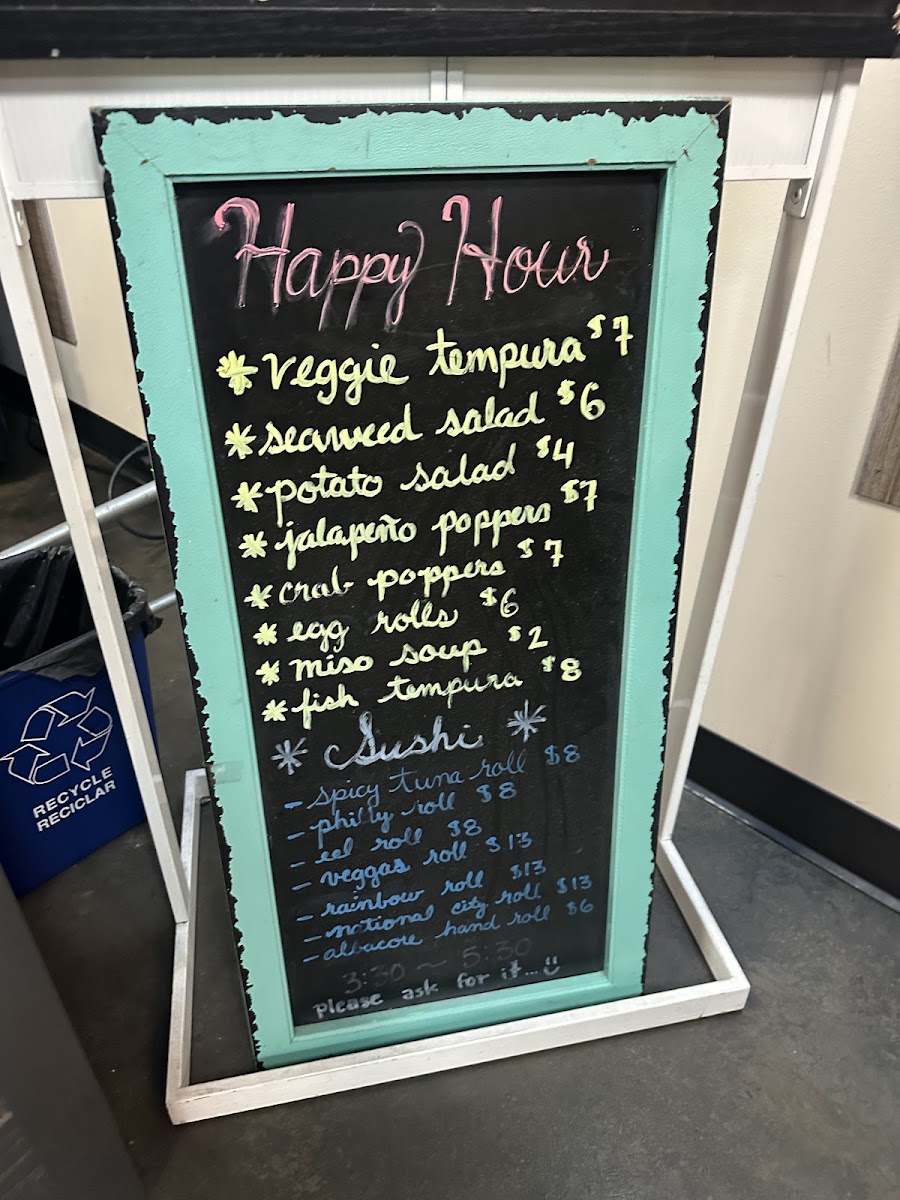 Happy Hour
*veggie tempura $7
*seaweed salad $6
*potato salad $4
*jalapeño poppers $7
*crab poppers $7
*egg rolls $6
*miso soup $2
*fish tempura $8
* Sushi *
- spicy tuna roll $8
- philly roll $8
- eel roll $8
- veggas roll $13
- rainbow roll $13
- national city roll $13
- albacore hand roll $6
3:30 ~ 5:30
please ask for it...
RECYCLE
RECICLAR